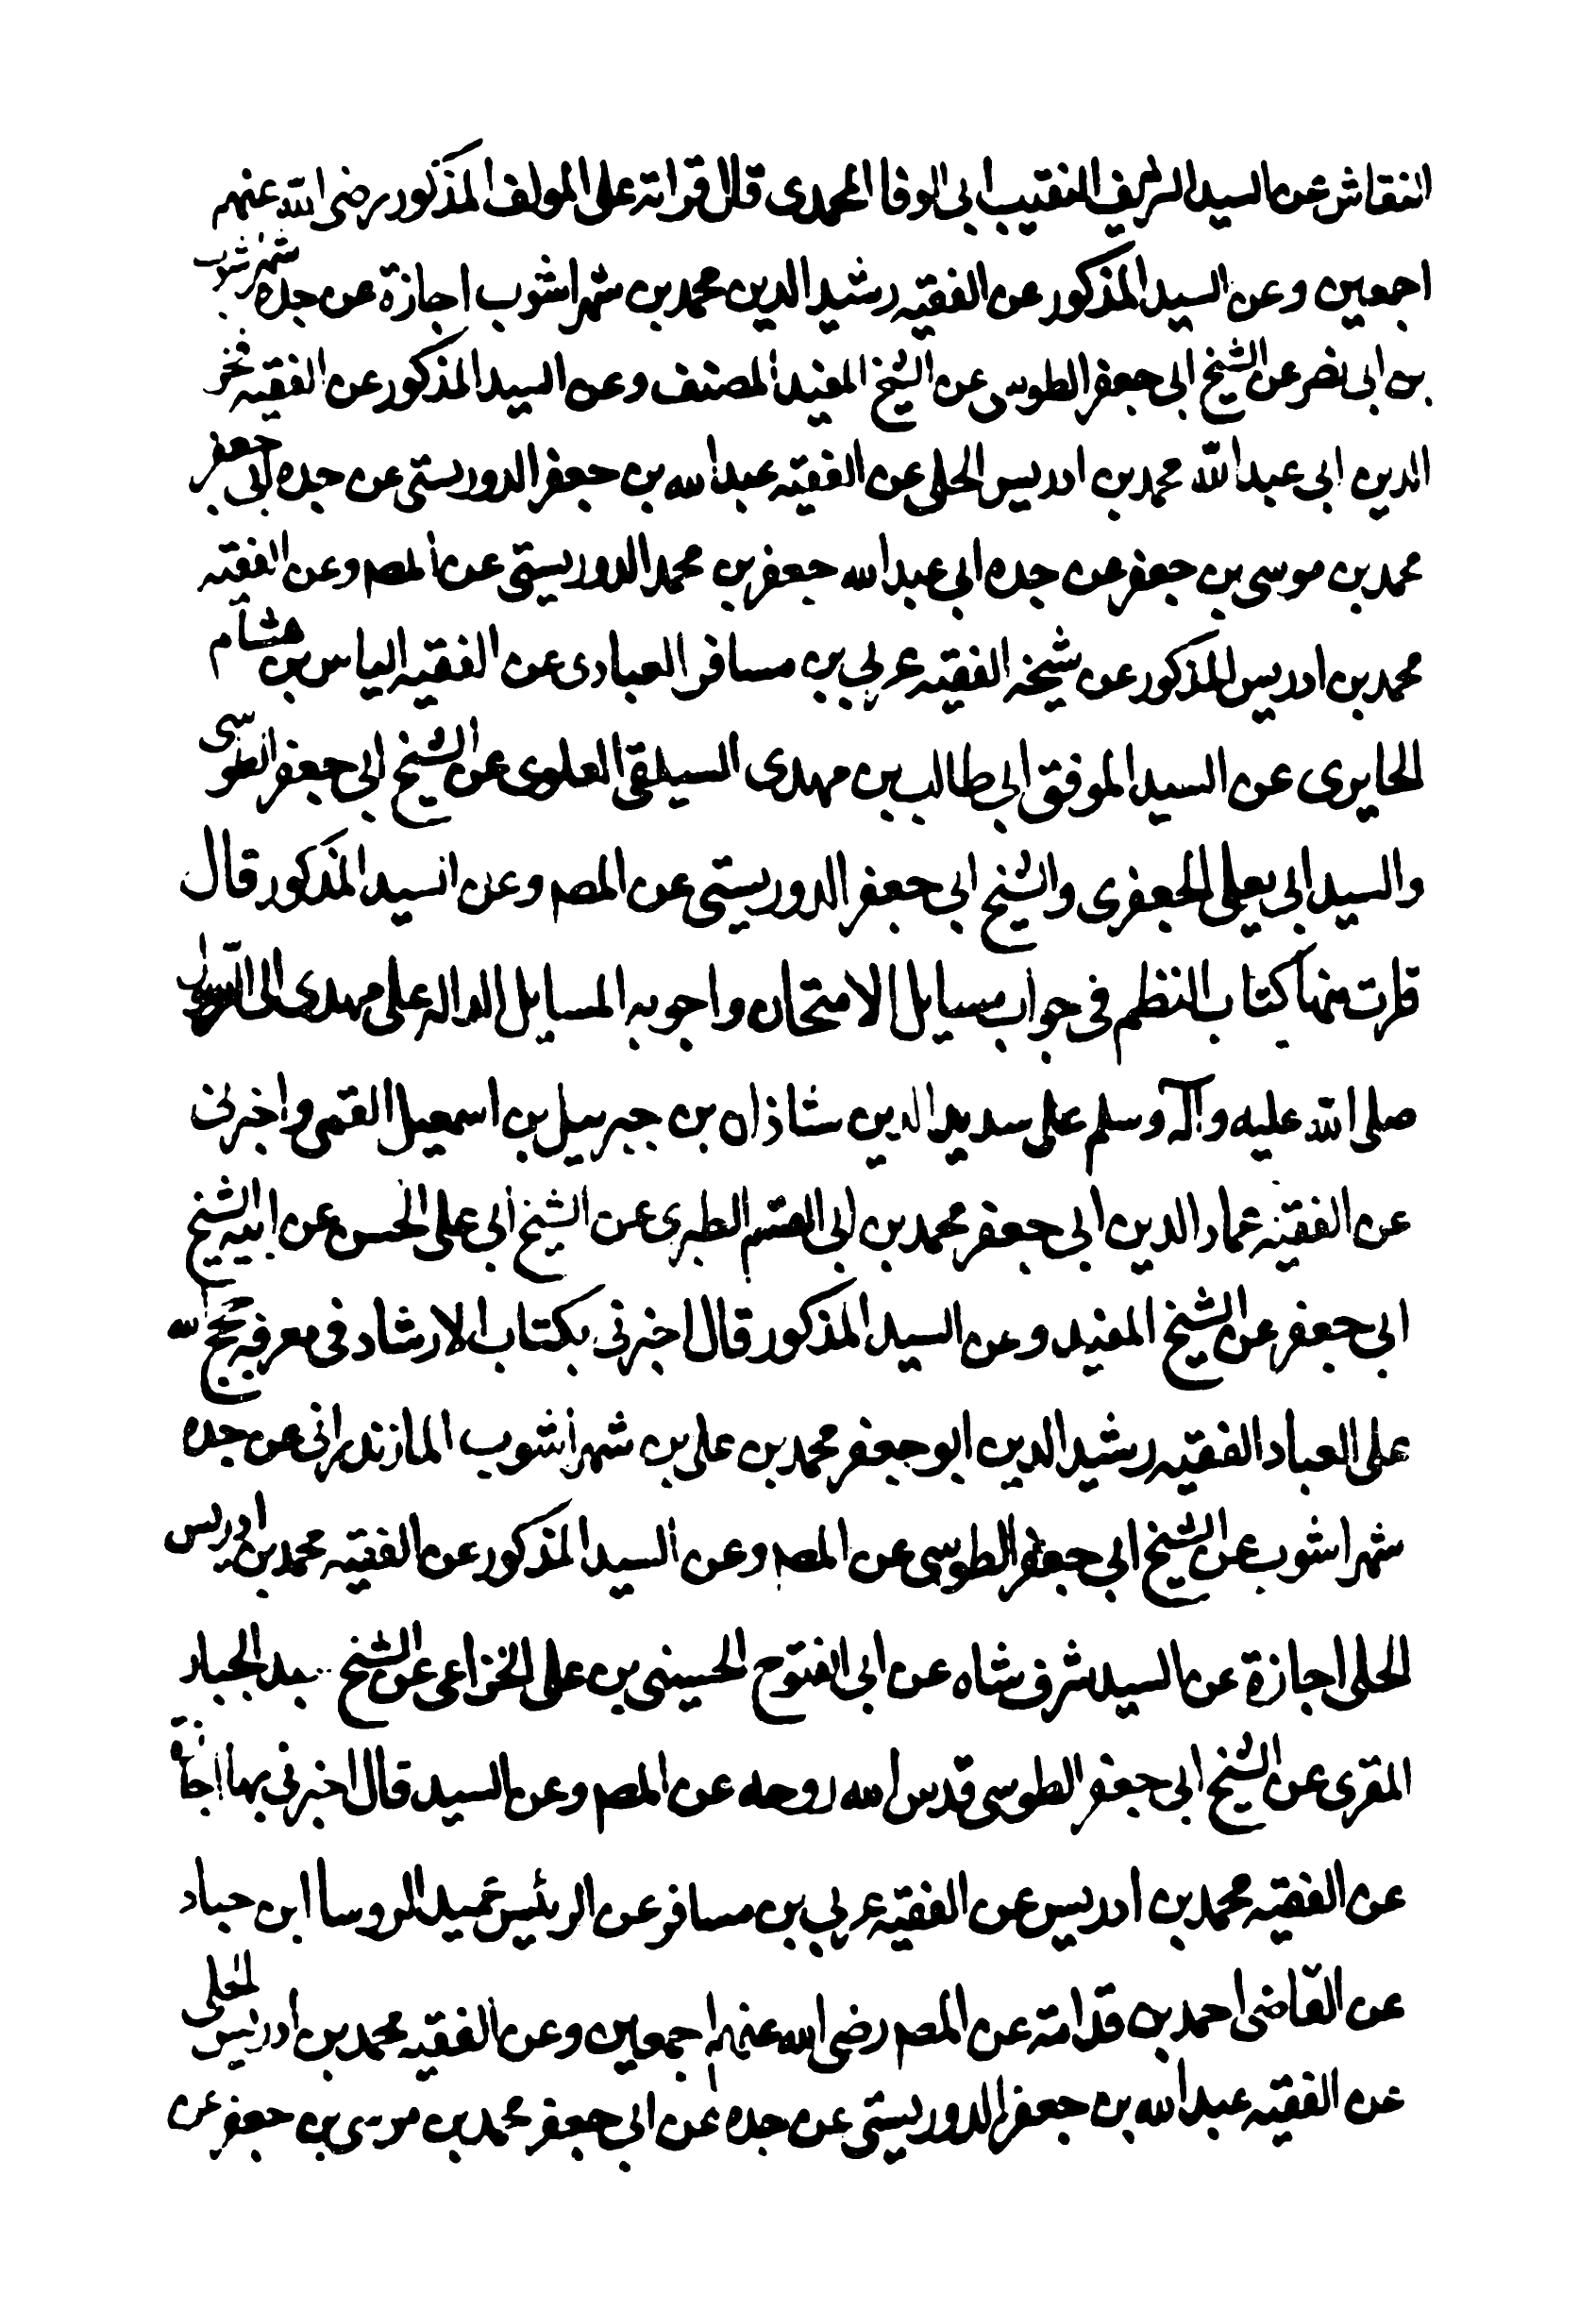 النقاش عن السيد الشريف النقيب ابى الوفا المحمدى قال قراته على المولف المذكور رضى الله عنهم
اجمعين وعن السيد المذكور عن الفقيه رشيد الدين محمد بن شهراشوب اجازة عن جده شهراشوب
بن ابى نصر عن الشيخ ابى جعفر الطوسى عن الشيخ المفيد المصنف وعن السيد المذكور عن الفقيه فخر
الدين ابى عبد الله محمد بن ادريس الحلى عن الفقيه عبد الله بن جعفر الدوريستى عن جده ابى جعفر
محمد بن موسى بن جعفر عن جده ابى عبد الله جعفر بن محمد الدوريستى عن المصـ وعن الفقيه
محمد بن ادريس المذكور عن شيخه الفقيه عربي بن مسافر العبادى عن الفقيه الياس بن هشام
الحايرى عن السيد الموفق ابى طالب بن مهدى السيلقى العلوى عن الشيخ ابى جعفر الطوسى
والسيد ابى يعلى الجعفرى والشيخ ابى جعفر الدوريستى عن المصـ وعن السيد المذكور قال
قرات منها كتاب النظم فى جواب مسايل الامتحان واجوبه المسايل الداله على مهدى ال الرسول
صلى الله عليه وآله وسلم على سديد الدين شاذان بن جبرييل بن اسمعيل القمى واخبرنى
عن الفقيه عماد الدين ابى جعفر محمد بن ابى القسم الطبرى عن الشيخ ابى على الحسن عن ابيه الشيخ
ابى جعفر عن الشيخ المفيد وعن السيد المذكور قال اخبرنى بكتاب الارشاد فى معرفة حجج الله
على العباد الفقيه رشيد الدين ابو جعفر محمد بن على بن شهراشوب المازندرانى عن جده
شهراشوب عن الشيخ ابى جعفر الطوسى عن المصـ وعن السيد المذكور عن الفقيه محمد بن ادريس
الحلى اجازة عن السيد شرف شاه عن ابى الفتوح الحسينى بن على الخزاعى عن الشيخ عبد الجبار
المقرى عن الشيخ ابى جعفر الطوسى قدس الله روحه عن المصـ وعن السيد قال اخبرنى بها اجازة
عن الفقيه محمد بن ادريس عن الفقيه عربي بن مسافر عن الرئيس عميد الروسا ابن حباد
عن القاضى احمد بن قدامة عن المصـ رضى الله عنهم اجمعين وعن الفقيه محمد بن ادريس الحلى
عن الفقيه عبد الله بن جعفر الدوريستى عن جده عن ابى جعفر محمد بن موسى بن جعفر عن